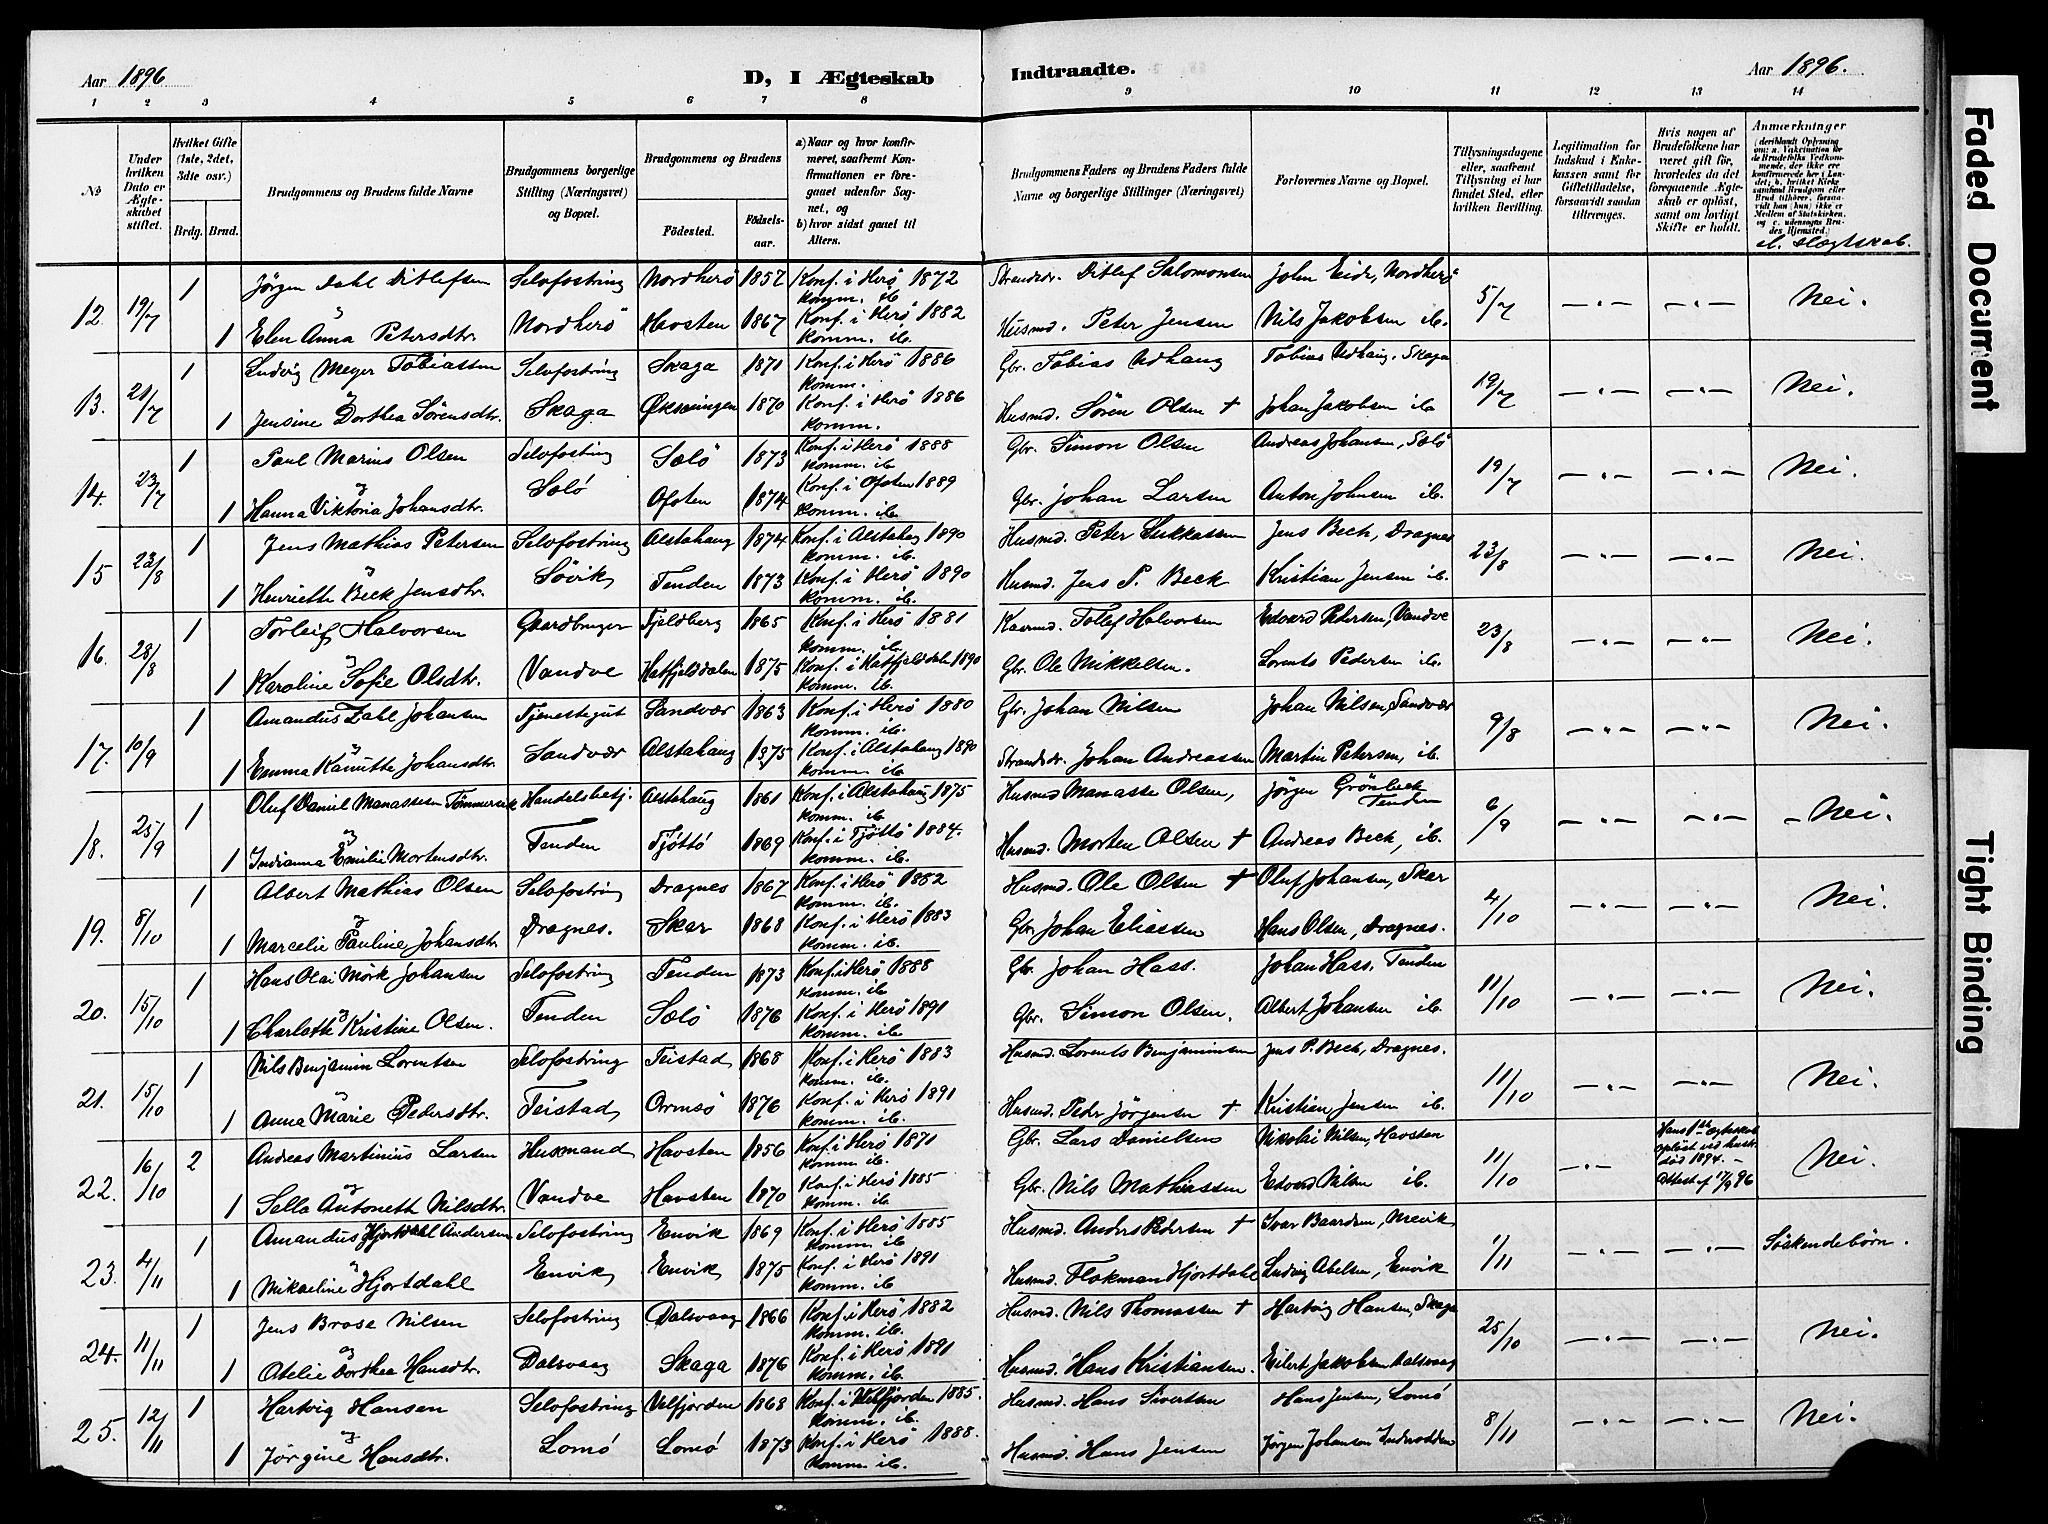 Aar 1896
D, I Ægteskab
Indtraadte.
Aar 1896.
1 2 3 4 5 6 7 8 9 10 11 12 13 14
No
Under hvilken Dato er Ægteskabet stiftet.
Hvilket Gifte (1ste, 2det, 3die osv.)
Brdg. Brud.
Brudgommens og Brudens fulde Navne
Brudgommens borgerlige Stilling (Næringsvei) og Bopæl.
Brudgommens og Brudens
Fødested.
Fødselsaar.
a) Naar og hvor konfirmeret, saafremt Konfirmationen er foregaaet udenfor Sognet, og
b) hvor sidst gaaet til Alters.
Brudgommens Faders og Brudens Faders fulde Navne og borgerlige Stillinger (Næringsvei)
Forlovernes Navne og Bopæl.
Tillysningsdagene eller, saafremt Tillysning ei har fundet Sted, efter hvilken Bevilling.
Legitimation for Indskud i Enkekassen samt for Giftetilladelse, forsaavidt saadan tiltrænges.
Hvis nogen af Brudefolkene har været gift før, hvorledes da det foregaaende Ægteskab er opløst, samt om lovligt Skifte er holdt.
Anmærkninger
(deriblandt Oplysning om: a. Vaksination for de Brudefolks Vedkommende, der ikke ere konfirmerede her i Landet; b. hvilket Kirkesamfund Brudgom eller Brud tilhører, forsaavidt han (hun) ikke er Medlem af Statskirken, og c. udensogns Brudes Hjemsted.)
d. slægtskab.
12. 19/7 1 Jörgen Dahl Ditlefsen Selvfostring Nordherö 1857 Konf. i Herö 1872 Strandsdr. Ditlef Salomonsen John Eide, Nordherö 5/7 Nei.
og komm. ib.
1 Elen Anna Petersdtr. Nordherö Havsten 1867 Konf. i Herö 1882 Husmd. Peter Jensen Nils Jakobsen ib.
komm. ib.
13. 21/7 1 Ludvig Meyer Tobiassen Selvfostring Skaga 1871 Konf. i Herö 1886 Gbr. Tobias Udhaug Tobias Udhaug, Skaga 19/7 Nei.
og komm.
1 Jensine Dorthea Sörensdtr. Skaga Øksningen 1870 Konf. i Herö 1886 Husmd. Sören Olsen † Johan Jakobsen ib.
komm.
14. 23/7 1 Paul Marius Olsen Selvfostring Sælö 1873 Konf. i Herö 1888 Gbr. Simon Olsen Andreas Johansen, Sælö 19/7 Nei.
og komm. ib
1 Hanna Viktoria Johansdtr. Sælö Ofoten 1874 Konf. i Ofoten 1889 Gbr. Johan Larsen Anton Johnsen ib.
komm. ib.
15 23/8 1 Jens Mathias Petersen Selvfostring Alstahaug 1874 Konf. i Alstahaug 1890 Husmd. Peter Lukkassen Jens Beck, Dragnes 23/8 Nei.
og komm. ib.
1 Henriette Beck Jensdtr. Sövik Tenden 1873 Konf. i Herö 1890 Husmd. Jens P. Beck Kristian Jensen ib.
komm. ib.
16. 28/8 1 Torleif Halvorsen Gaardbruger Fjeldberg 1865 Konf. i Herö 1881 Kaarmd. Tollef Halvorsen Edvard Pedersen, Vandve 23/8 Nei.
og komm. ib.
1 Karoline Sofie Olsdtr. Vandve Hatfjelddalen 1875 Konf. i Hatfjelddalen 1890 Gbr. Ole Mikkelsen. Lorents Pedersen ib.
komm. ib.
17. 10/9 1 Amandus Zahl Johansen Tjenestegut Sandvær 1863 Konf. i Herö 1880 Gbr. Johan Nilsen Johan Nilsen, Sandvær 9/8 Nei.
og komm. ib.
1 Emma Kanutte Johansdtr. Sandvær Alstahaug 1875 Konf. i Alstahaug 1890 Strandsdr. Johan Andreassen Martin Petersen, ib.
komm. ib.
18. 25/9 1 Oluf Daniel Manassesen Tömmervik Handelsbetj. Alstahaug 1861 Konf. i Alstahaug 1875 Husmd Manasse Olsen, Jörgen Grönbeck Tenden 6/9 Nei.
og komm. ib
1 Indianna Emilie Mortensdtr. Tenden Tjöttö 1869 Konf. i Tjöttö 1884. Husmd. Morten Olsen † Andreas Beck, ib.
komm. ib.
19. 8/10 1 Albert Mathias Olsen Selvfostring Dragnes 1867 Konf. i Herö 1882 Husmd. Ole Olsen † Oluf Johansen, Skar 4/10 Nei.
og komm. ib.
1 Marcelie Pauline Johansdtr. Dragnes. Skar 1868 Konf. i Herö 1883 Gbr. Johan Eliassen Hans Olsen, Dragnes.
komm. ib.
20. 15/10 1 Hans Olai Mörk Johansen Selvfostring Tenden 1873 Konf. i Herö 1888 Gbr. Johan Hass. Johan Hass. Tenden 11/10 Nei.
og komm. ib
1 Charlotte Kristine Olsen. Tenden Sælö 1876 Konf. i Herö 1891 Gbr. Simon Olsen. Albert Johansen ib.
komm. ib
21. 15/10 1 Nils Benjamin Lorentsen Selvfostring Teistad 1868 Konf. i Herö 1883 Husmd. Lorents Benjaminsen Jens P. Beck, Dragnes. 11/10 Nei.
og komm. ib.
1 Anna Marie Pedersdtr. Teistad Ormsö 1876 Konf. i Herö 1891 Husmd. Peder Jörgensen † Kristian Jensen ib.
komm. ib.
22. 16/10 2 Andreas Martinius Larsen Husmand Havsten 1856 Konf. i Herö 1871 Gbr. Lars Danielsen Nikolai Nilsen, Havsten 11/10 Hans 1ste ægteskab opløst ved hustr. død 1894. – Attest af 17/9 96 Nei.
og komm. ib.
1 Sella Antonette Nilsdtr. Vandve Havsten 1870 Konf. i Herö 1885 Gbr. Nils Mathiassen Edvard Nilsen ib.
komm. ib
23. 4/11 1 Amandus Hjortdahl Andersen Selvfostring Envik 1869 Konf. i Herö 1885 Husmd. Anders Pedersen † Ivar Baardsen, Nævik 1/11 Söskendebörn.
og komm. ib
1 Mikaeline Hjortdahl Envik 1875 Konf. i Herö 1891 Husmd. Flokman Hjortdahl Ludvig Abelsen, Envik
komm. ib
24. 11/11 1 Jens Brose Nilsen Selvfostring Dalsvaag 1866 Konf. i Herö 1882 Husmd. Nils Thomassen † Hartvig Hansen, Skaga 25/10 Nei.
og komm. ib.
1 Otelie Dorthea Hansdtr. Dalsvaag Skaga 1876 Konf. i Herö 1891 Husmd. Hans Kristiansen. Eilert Jakobsen Dalsvaag
komm. ib.
25. 12/11 1 Hartvig Hansen Selvfostring Velfjorden 1868 Konf. i Velfjorden 1885. Husmd. Hans Sivertsen Hans Jensen, Lomö 8/11 Nei.
og komm. ib.
1 Jörgine Hansdtr. Lomö Lomö 1873 Konf. i Herö 1888. Husmd. Hans Jensen Jörgen Johansen Inderodden
komm. ib.
Faded Document
Tight Binding